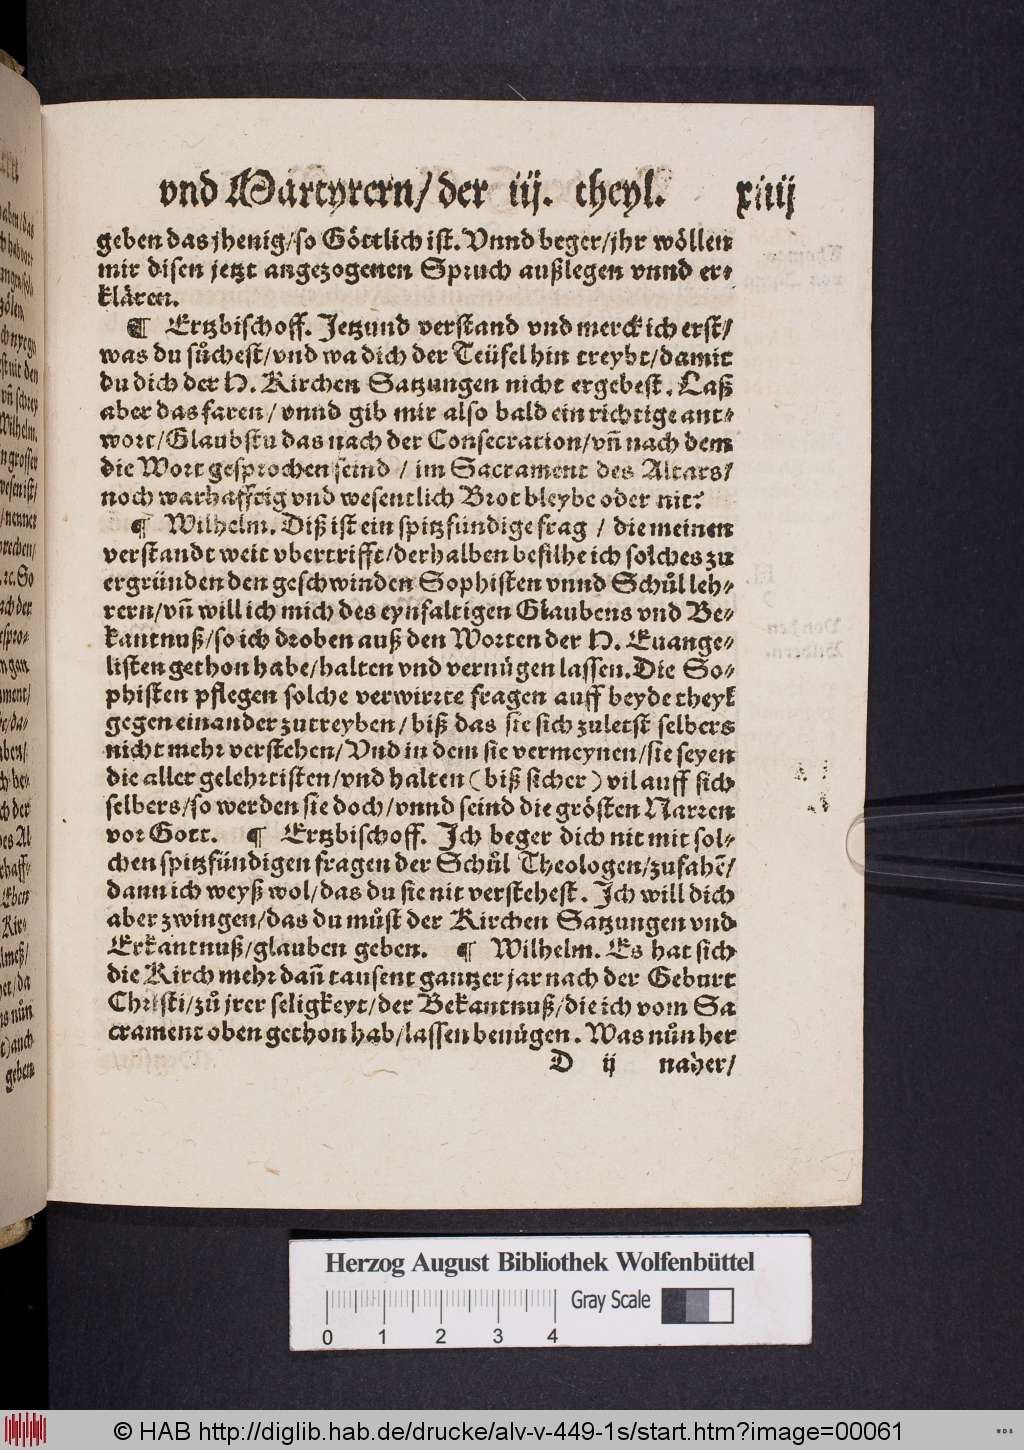 vnd Märtyrern/ der iij. theyl. xiiij
geben das jhenig/so Göttlich ist. Vnnd beger/jhr wöllen
mir disen jetzt angezogenen Spruch außlegen vnnd er⸗
klären.
¶ Ertzbischoff. Jetzund verstand vnd merck ich erst/
was du sůchest/vnd wa dich der Teüfel hin treybt/damit
du dich der H. Kirchen Satzungen nicht ergebest. Laß
aber das faren/ vnnd gib mir also bald ein richtige ant⸗
wort/Glaubstu das nach der Consecration/vñ nach dem
die Wort gesprochen seind / im Sacrament des Altars/
noch warhafftig vnd wesentlich Brot bleybe oder nit?
¶ Wilhelm. Diß ist ein spitzfündige frag / die meinen
verstandt weit vbertrifft/derhalben befilhe ich solches zu
ergründen den geschwinden Sophisten vnnd Schůl leh⸗
rern/vñ will ich mich des eynfaltigen Glaubens vnd Be⸗
kantnuß/so ich droben auß den Worten der H. Euange⸗
listen gethon habe/halten vnd vernügen lassen. Die So⸗
phisten pflegen solche verwirrte fragen auff beyde theyl
gegen einander zutreyben/ biß das sie sich zuletst selbers
nicht mehr verstehen/ Vnd in dem sie vermeynen/sie seyen
die aller gelehrtisten/vnd halten (biß sicher) vil auff sich
selbers/so werden sie doch/vnnd seind die grösten Narren
vor Gott. ¶ Ertzbischoff. Ich beger dich nit mit sol⸗
chen spitzfündigen fragen der Schůl Theologen/zufahẽ/
dann ich weyß wol/das du sie nit verstehest. Ich will dich
aber zwingen/das du můst der Kirchen Satzungen vnd
Erkantnuß/glauben geben. ¶ Wilhelm. Es hat sich
die Kirch mehr dañ tausent gantzer jar nach der Geburt
Christi/zů jrer seligkeyt/der Bekantnuß/die ich vom Sa
crament oben gethon hab/lassen benügen. Was nůn her
D ij naher/
Herzog August Bibliothek Wolfenbüttel
Gray Scale
0 1 2 3 4
© HAB http://diglib.hab.de/drucke/alv-v-449-1s/start.htm?image=00061